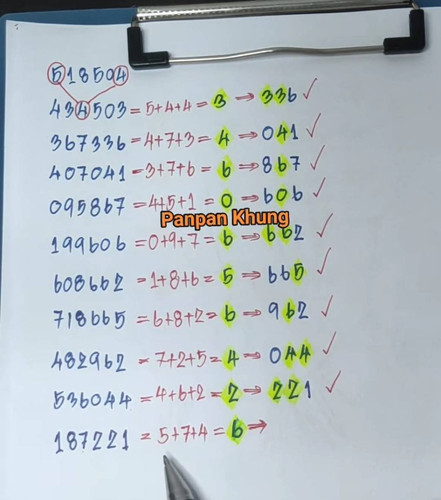 518504
434503 = 5+4+4 = 3 ⇒ 336 ✓
367336 = 4+7+3 = 4 ⇒ 041 ✓
407041 = 3+7+6 = 6 ⇒ 867 ✓
095867 = 4+5+1 = 0 ⇒ 606 ✓
Panpan Khung
199606 = 0+9+7 = 6 ⇒ 662 ✓
608662 = 1+8+6 = 5 ⇒ 665 ✓
718665 = 6+8+2 = 6 ⇒ 962 ✓
482962 = 7+2+5 = 4 ⇒ 044 ✓
536044 = 4+6+2 = 2 ⇒ 221 ✓
187221 = 5+7+4 = 6 ⇒